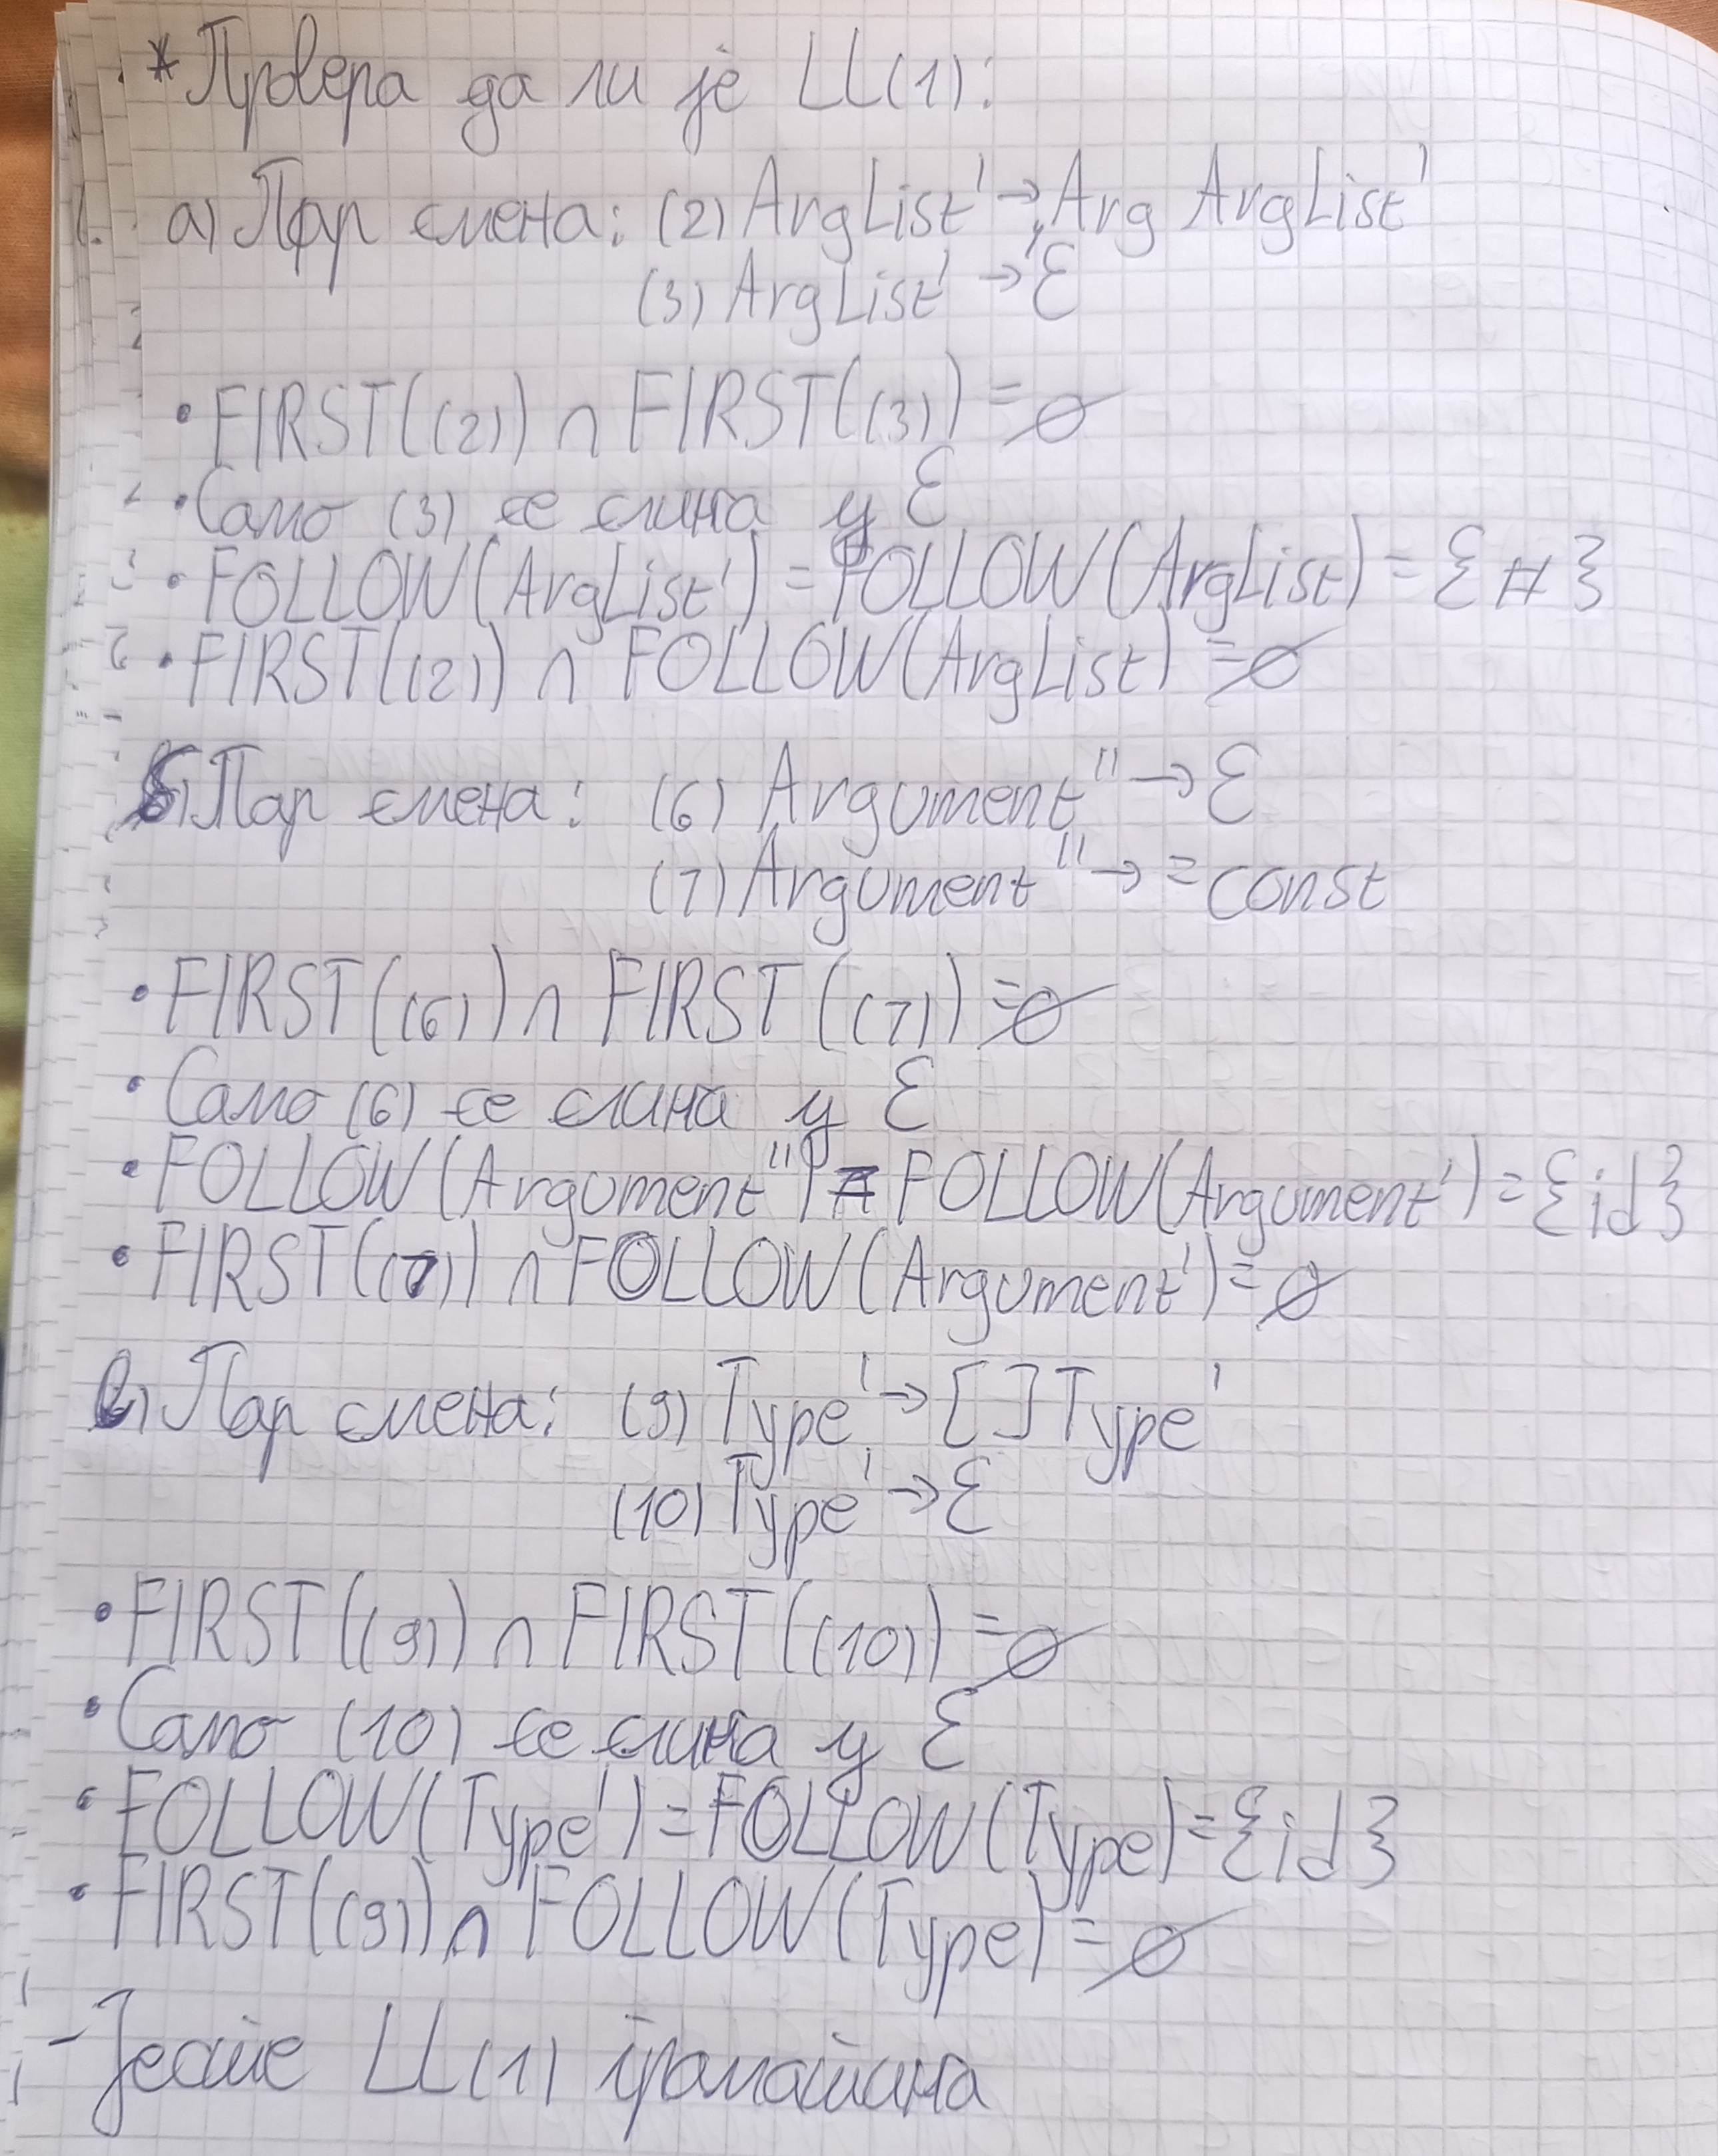 * Провера да ли је LL(1):
а) Пар смена: (2) ArgList' → , Arg ArgList'
(3) ArgList' → ε
• FIRST((2)) ∩ FIRST((3)) = ∅
• Само (3) се слина у ε
• FOLLOW(ArgList') = FOLLOW(ArgList) = {#}
• FIRST((2)) ∩ FOLLOW(ArgList) = ∅
б) Пар смена: (6) Argument'' → ε
(7) Argument'' → = const
• FIRST((6)) ∩ FIRST((7)) = ∅
• Само (6) се слина у ε
• FOLLOW(Argument'') = FOLLOW(Argument') = {id}
• FIRST((7)) ∩ FOLLOW(Argument') = ∅
в) Пар смена: (9) Type' → [ ] Type'
(10) Type' → ε
• FIRST((9)) ∩ FIRST((10)) = ∅
• Само (10) се слина у ε
• FOLLOW(Type') = FOLLOW(Type) = {id}
• FIRST((9)) ∩ FOLLOW(Type) = ∅
- Јесте LL(1) граматика